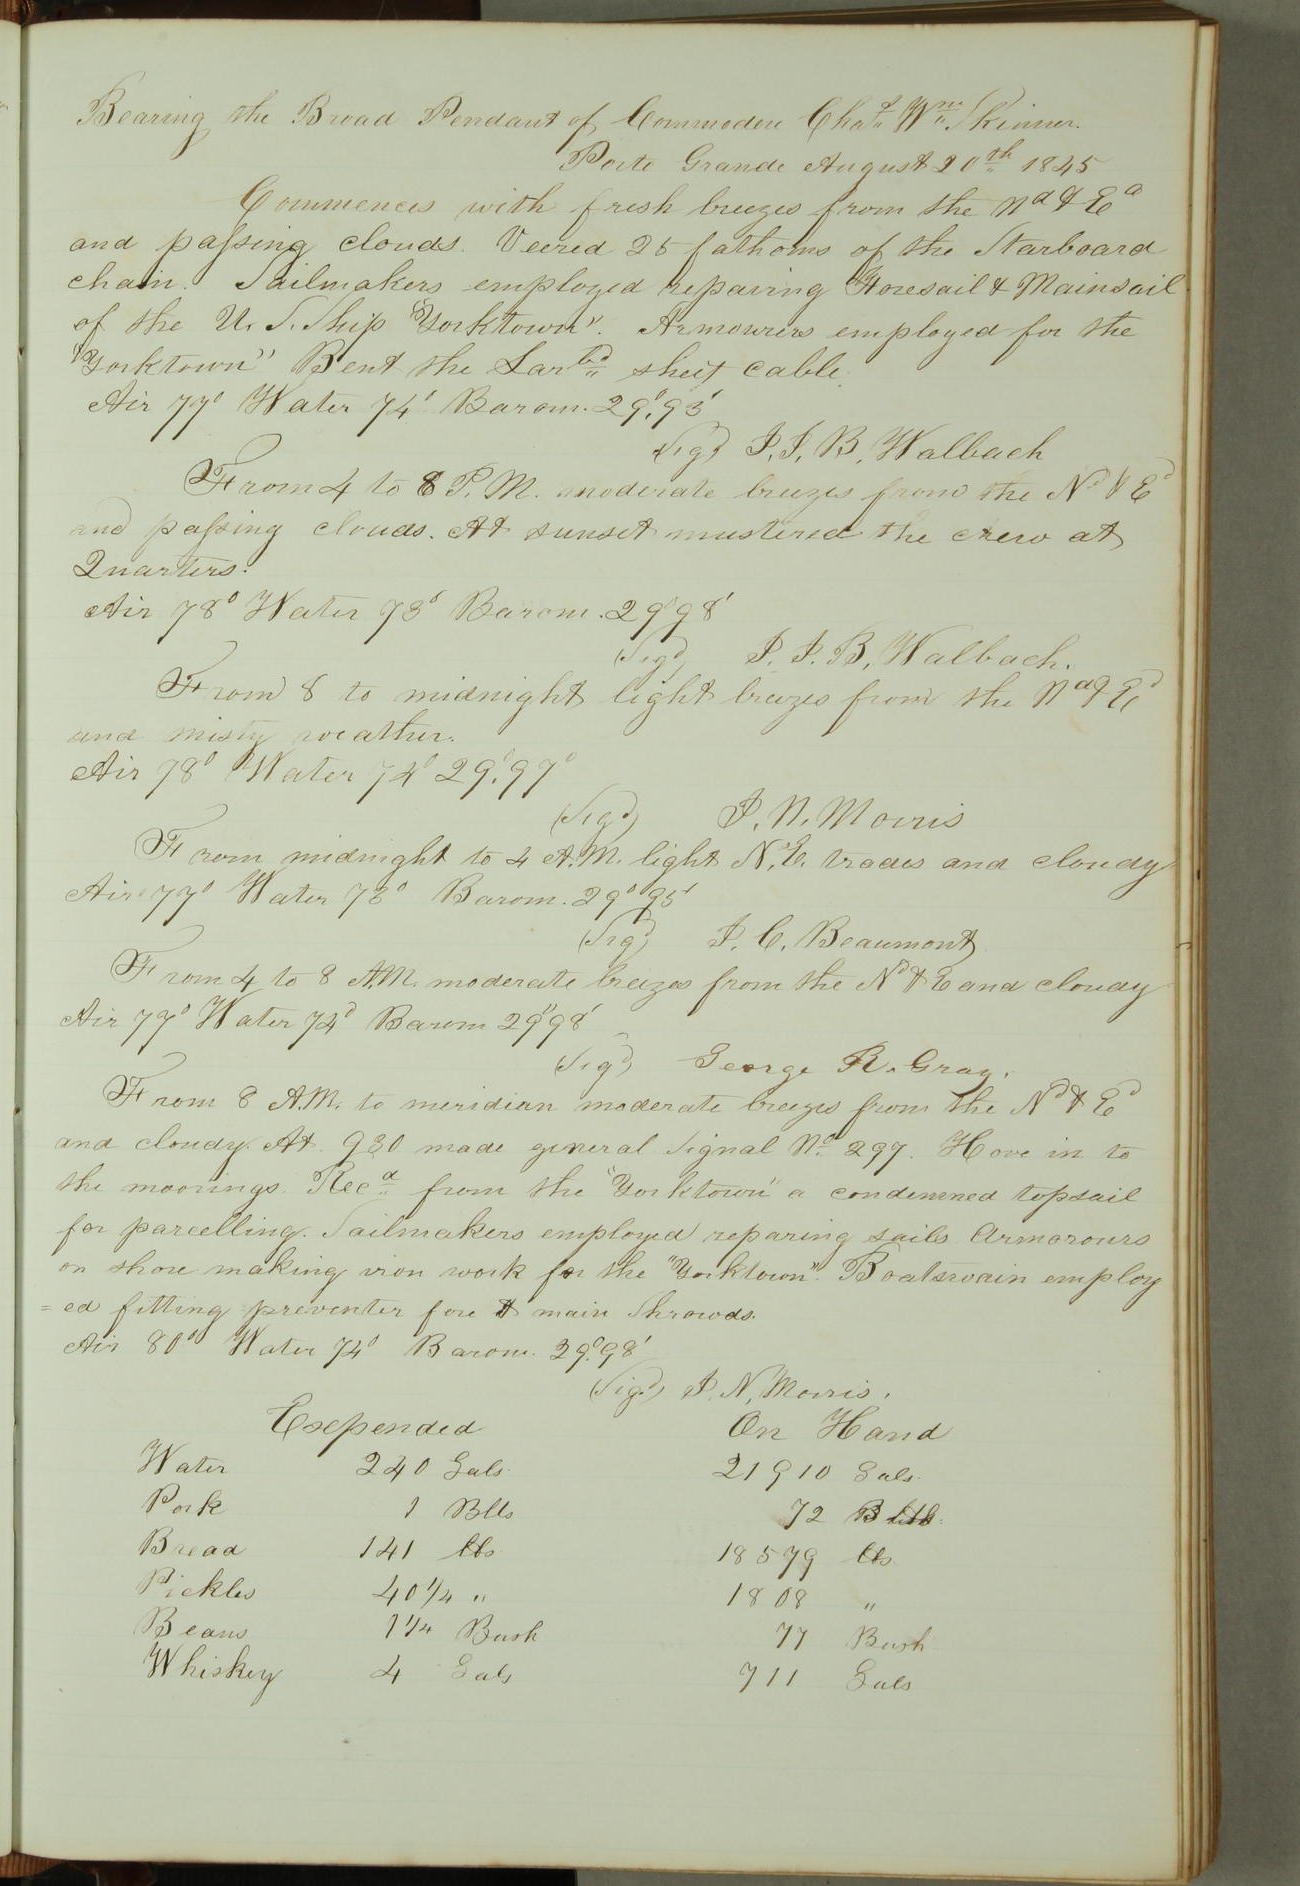 Bearing the Broad Pendant of Commodore Chas. Wm. Skinner.
Porto Grande August 20th 1845
Commences with fresh breezes from the Nd & Ed
and passing clouds. Veered 25 fathoms of the Starboard
chain. Sailmakers employed repairing Foresail & Mainsail
of the U. S. Ship "Yorktown". Armourers employed for the
"Yorktown" Bent the Larbd sheet cable.
Air 77° Water 74° Barom. 29°.93'
(Sigd) J. J. B. Walbach
From 4 to 8 P.M. moderate breezes from the Nd & Ed
and passing clouds. At sunset mustered the crew at
Quarters.
Air 78° Water 73° Barom. 29°98'
(Sigd) J. J. B. Walbach.
From 8 to midnight light breezes from the Nd & Ed
and misty weather.
Air 78° Water 74° 29°.97°
(Sigd) J. N. Morris
From midnight to 4 A.M. light N.E. trades and cloudy
Air 77° Water 73° Barom. 29°95'
(Sigd) J. C. Beaumont
From 4 to 8 A.M. moderate breezes from the Nd & E and cloudy
Air 77° Water 74° Barom 29°98'
(Sigd) George R. Gray.
From 8 A.M. to meridian moderate breezes from the Nd & Ed
and cloudy. At 930 made general Signal No. 297. Hove in to
the moorings. Recd from the "Yorktown" a condemned topsail
for parcelling. Sailmakers employed reparing sails Armorours
on shore making iron work for the "Yorktown". Boatswain employ
=ed fitting preventer fore & main Shrowds.
Air 80° Water 74° Barom. 29°.98'
(Sigd) J. N. Morris.
Expended On Hand
Water 240 Gals. 21910 Gals.
Pork 1 Blls 72 Blls.
Bread 141 lbs 18579 lbs
Pickles 40 1/4 " 1808 "
Beans 1 1/4 Bush 77 Bush
Whiskey 4 Gals 711 Gals